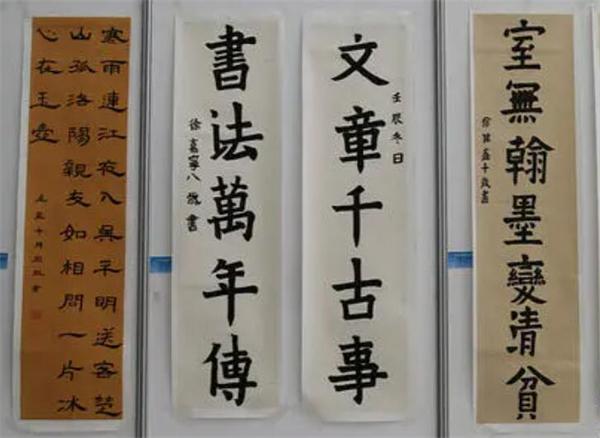 室無翰墨變清貧
文章千古事
壬辰冬日
書法萬年傳
徐嘉寧八歲書
寒雨連江夜入吳平明送客楚
山孤洛陽親友如相問一片冰
心在玉壺